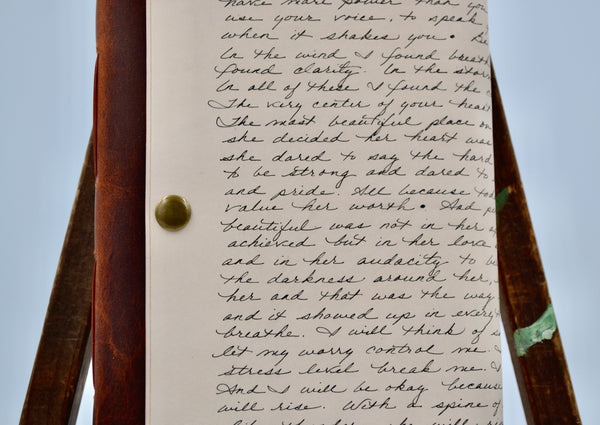 have more power than you
use your voice, to speak
when it shakes you. Be
In the wind I found breath
found clarity. In the stor
In all of these I found the
The very center of your heart
The most beautiful place on
she decided her heart was
she dared to say the hard
to be strong and dared to
and pride. All because
value her worth. And
beautiful was not in her
achieved but in her love
and in her audacity to b
the darkness around her,
her and that was the way
and it showed up in every
breathe. I will think of s
let my worry control me. I
stress level break me. I
And I will be okay because
will rise. With a spine of